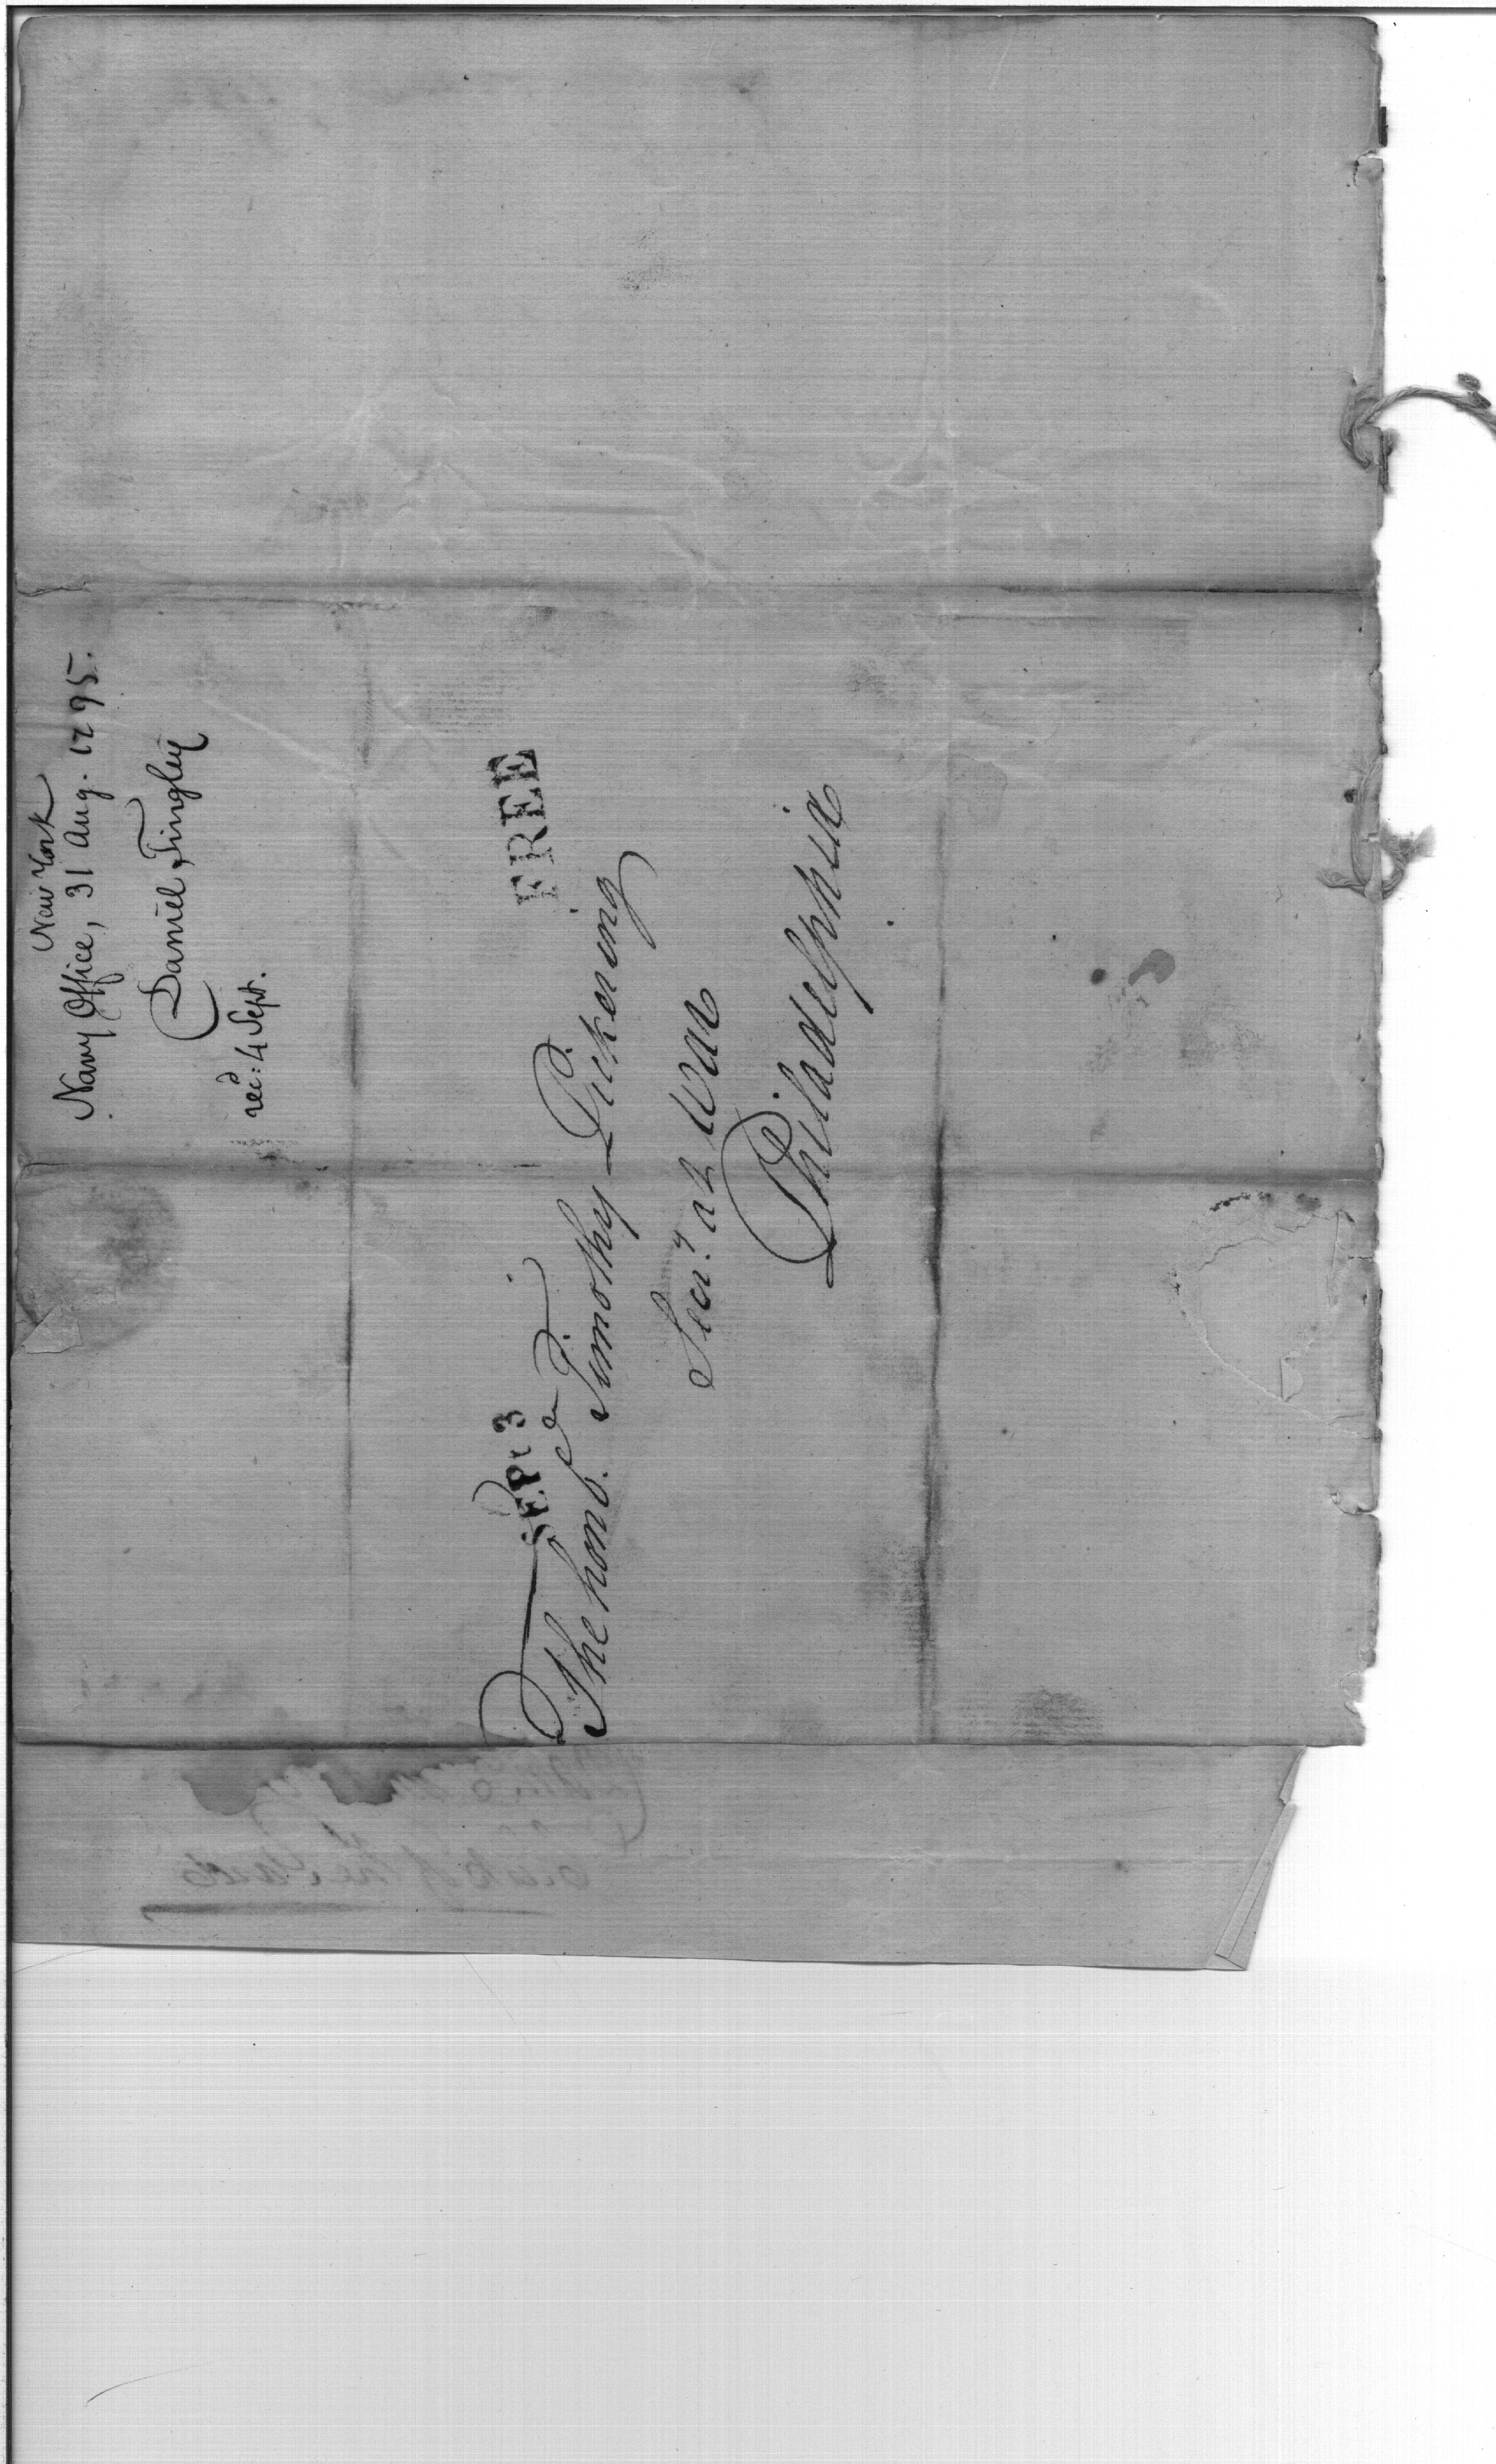 New York
Navy Office, 31 Aug. 1795.
Daniel Tingley
recd: 4 Sept.
FREE
SEP: 3
The honb. Timothy Pickering
Secry. at War
Philadelphia